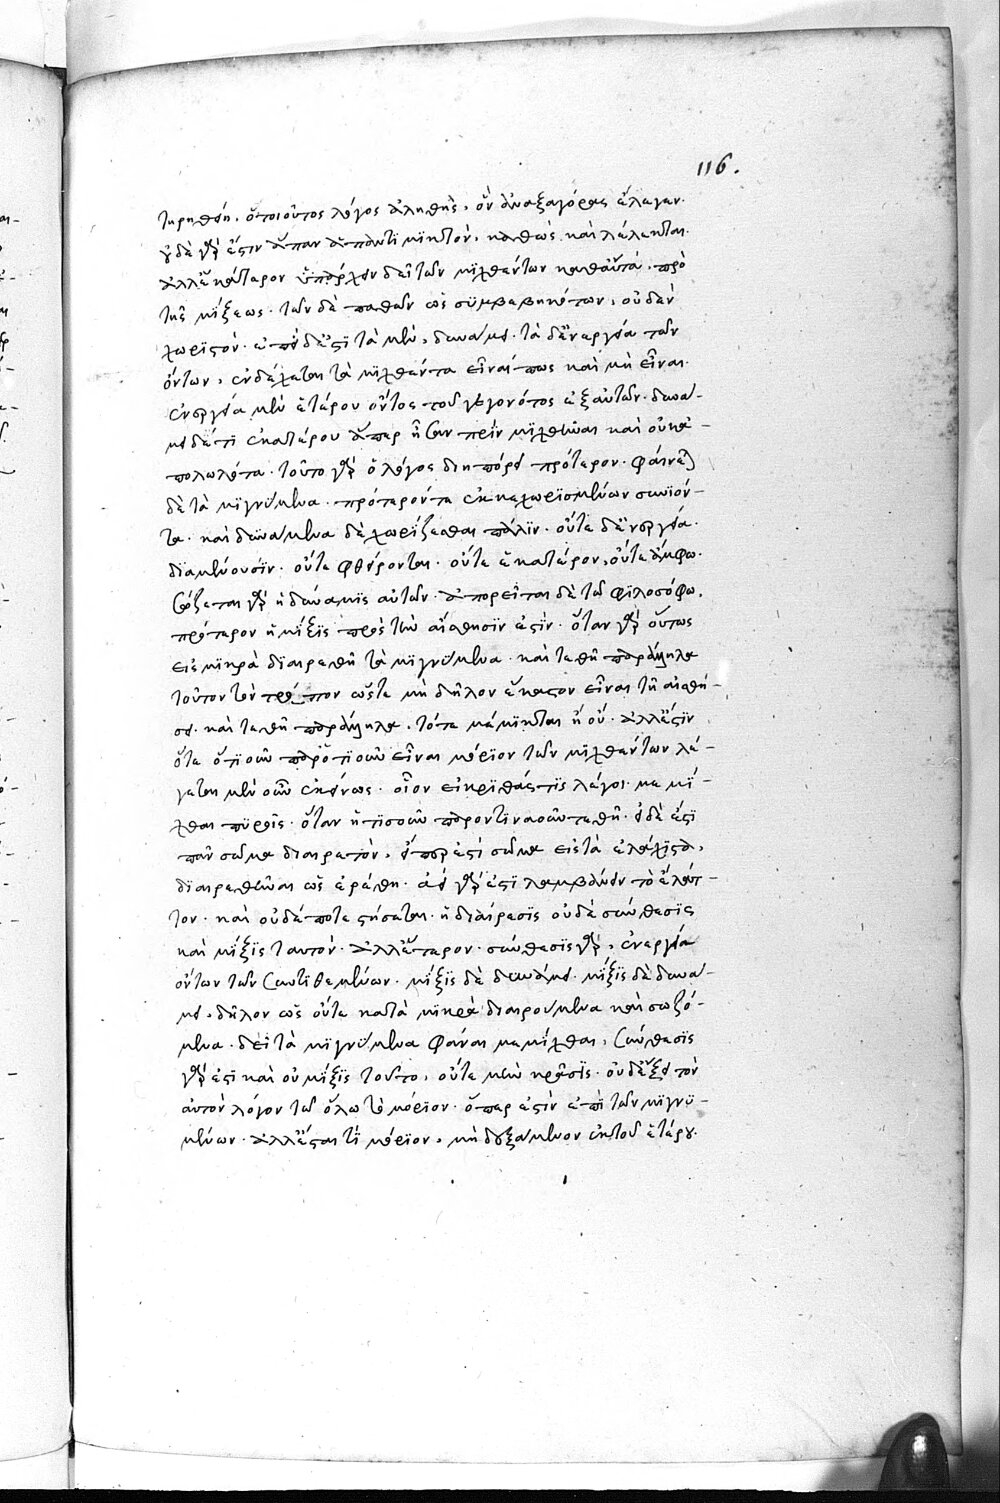 116.
τηρηθείη. ὁ τοιοῦτος λόγος ἀληθὴς, ὃν ἀναξαγόρας ἔλεγεν.
οὐδὲ γάρ ἐστιν ἅπαν ἅπαντι μικτὸν, καθὼς καὶ λέλεκται.
ἀλλ' ἑκάτερον ὑπάρχειν δεῖ τῶν μιχθέντων καθ' αὑτὰ, πρὸ
τῆς μίξεως. τῶν δὲ παθῶν ὡς συμβεβηκότων, οὐδὲν
χωριστόν. ἐπεὶ δέ ἐστι τὰ μὲν, δυνάμει. τὰ δ' ἐνεργείᾳ τῶν
ὄντων, ἐνδέχεται τὰ μιχθέντα εἶναί πως καὶ μὴ εἶναι.
ἐνεργείᾳ μὲν ἑτέρου ὄντος τοῦ γεγονότος ἐξ αὐτῶν. δυνά-
μει δέ τι ἑκατέρου ἅπερ ἦσαν πρὶν μιχθῆναι καὶ οὐκ ἀ-
πολωλότα. τοῦτο γὰρ ὁ λόγος διηπόρει πρότερον. φαίνεται
δὲ τὰ μιγνύμενα. πρότερόν τε ἐκ κεχωρισμένων συνιόν-
τα. καὶ δυνάμενα δὲ χωρίζεσθαι πάλιν. οὔτε δ' ἐνεργείᾳ.
διαμένουσιν. οὔτε φθείρονται. οὔτε ἑκατέρον, οὔτε ἄμφω.
σώζεται γὰρ ἡ δύναμις αὐτῶν. ἀπορεῖται δὲ τῷ φιλοσόφῳ,
πρότερον ἡ μίξις πρὸς τὴν αἴσθησίν ἐστιν. ὅταν γὰρ οὕτως
εἰς μικρὰ διαιρεθῇ τὰ μιγνύμενα. καὶ τεθῇ παράλληλα
τοῦτον τὸν τρόπον ὥστε μὴ δῆλον ἕκαστον εἶναι τῇ αἰσθή-
σει. καὶ τεθῇ παράλληλα, τότε μέμικται ἢ οὔ. ἀλλ' ἔστιν
ὅτε ὁτιοῦν παρ' ὁτιοῦν εἶναι μόριον τῶν μιχθέντων λέ-
γεται μὲν οὖν ἐκείνως. οἷον εἰ κριθάς τις λέγοι. μεμί-
χθαι πυροῖς. ὅταν ἡτισοῦν παρ' ὁντιναοῦν τεθῇ. εἰ δέ ἐστι
πᾶν σῶμα διαιρετὸν, εἴπερ ἐστὶ σῶμα εἰς τὰ ἐλάχιστα,
διαιρεθῆναι ὡς ἐρέθη. ἀεὶ γάρ ἐστι λαμβάνειν τὸ ἔλατ-
τον. καὶ οὐδέποτε στήσεται. ἡ διαίρεσις οὐδὲ σύνθεσις
καὶ μίξις ταυτόν. ἀλλ' ἕτερον. σύνθεσις γὰρ, ἐνεργείᾳ
ὄντων τῶν συντιθεμένων. μίξις δὲ δυνάμει. μίξις δὲ δυνά-
μει, δῆλον ὡς οὔτε κατὰ μικρὰ διαιρούμενα καὶ σωζό-
μενα. δεῖ τὰ μιγνύμενα φάναι μεμίχθαι, σύνθεσις
γάρ ἐστι καὶ οὐ μίξις τοῦτο, οὔτε μὴν κρᾶσις. οὐδ' ἕξει τὸν
αὐτὸν λόγον τῷ ὅλῳ τὸ μόριον. ὅπερ ἐστὶν ἐπὶ τῶν μιγνυ-
μένων. ἀλλ' ἔσται τὶ μόριον, μὴ δεξάμενον ἐκ τοῦ ἑτέρου.